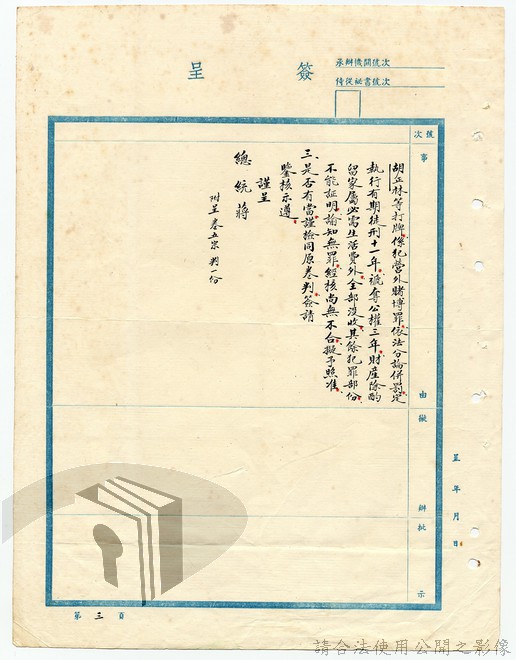 簽呈
承辦機關號次
侍從祕書號次
號次
事由
擬辦
批示
呈 年 月 日
胡丘林等打牌係犯營外賭博罪依法分論併罰定
執行有期徒刑十一年褫奪公權三年財產除酌
留家屬必需生活費外全部沒收其餘犯罪部份
不能証明諭知無罪經核尚無不合擬予照准
三、是否有當謹檢同原卷判簽請
鑒核示遵
謹呈
總統蔣
附呈卷五宗判一份
第三頁
請合法使用公開之影像